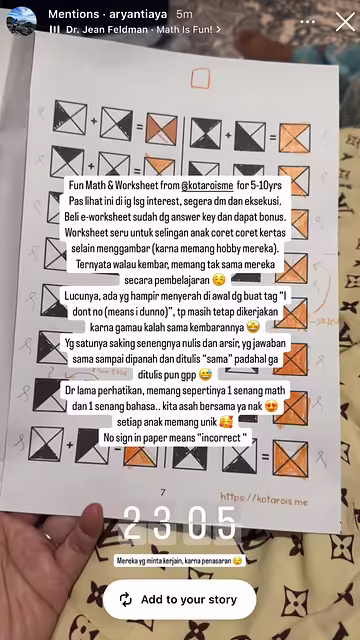 Mentions · aryantiaya 5m
Dr. Jean Feldman · Math Is Fun! >
Fun Math & Worksheet from @kotaroisme for 5-10yrs
Pas lihat ini di ig lsg interest, segera dm dan eksekusi.
Beli e-worksheet sudah dg answer key dan dapat bonus.
Worksheet seru untuk selingan anak coret coret kertas
selain menggambar (karna memang hobby mereka).
Ternyata walau kembar, memang tak sama mereka
secara pembelajaran ☺️
Lucunya, ada yg hampir menyerah di awal dg buat tag "I
dont no (means i dunno)", tp masih tetap dikerjakan
karna gamau kalah sama kembarannya 🤩
Yg satunya saking senengnya nulis dan arsir, yg jawaban
sama sampai dipanah dan ditulis "sama" padahal ga
ditulis pun gpp 😅
Dr lama perhatikan, memang sepertinya 1 senang math
dan 1 senang bahasa.. kita asah bersama ya nak 😍
setiap anak memang unik 🥰
No sign in paper means "incorrect "
7
https://kotarois.me
23 05
Mereka yg minta kerjain, karna penasaran 😏
Add to your story